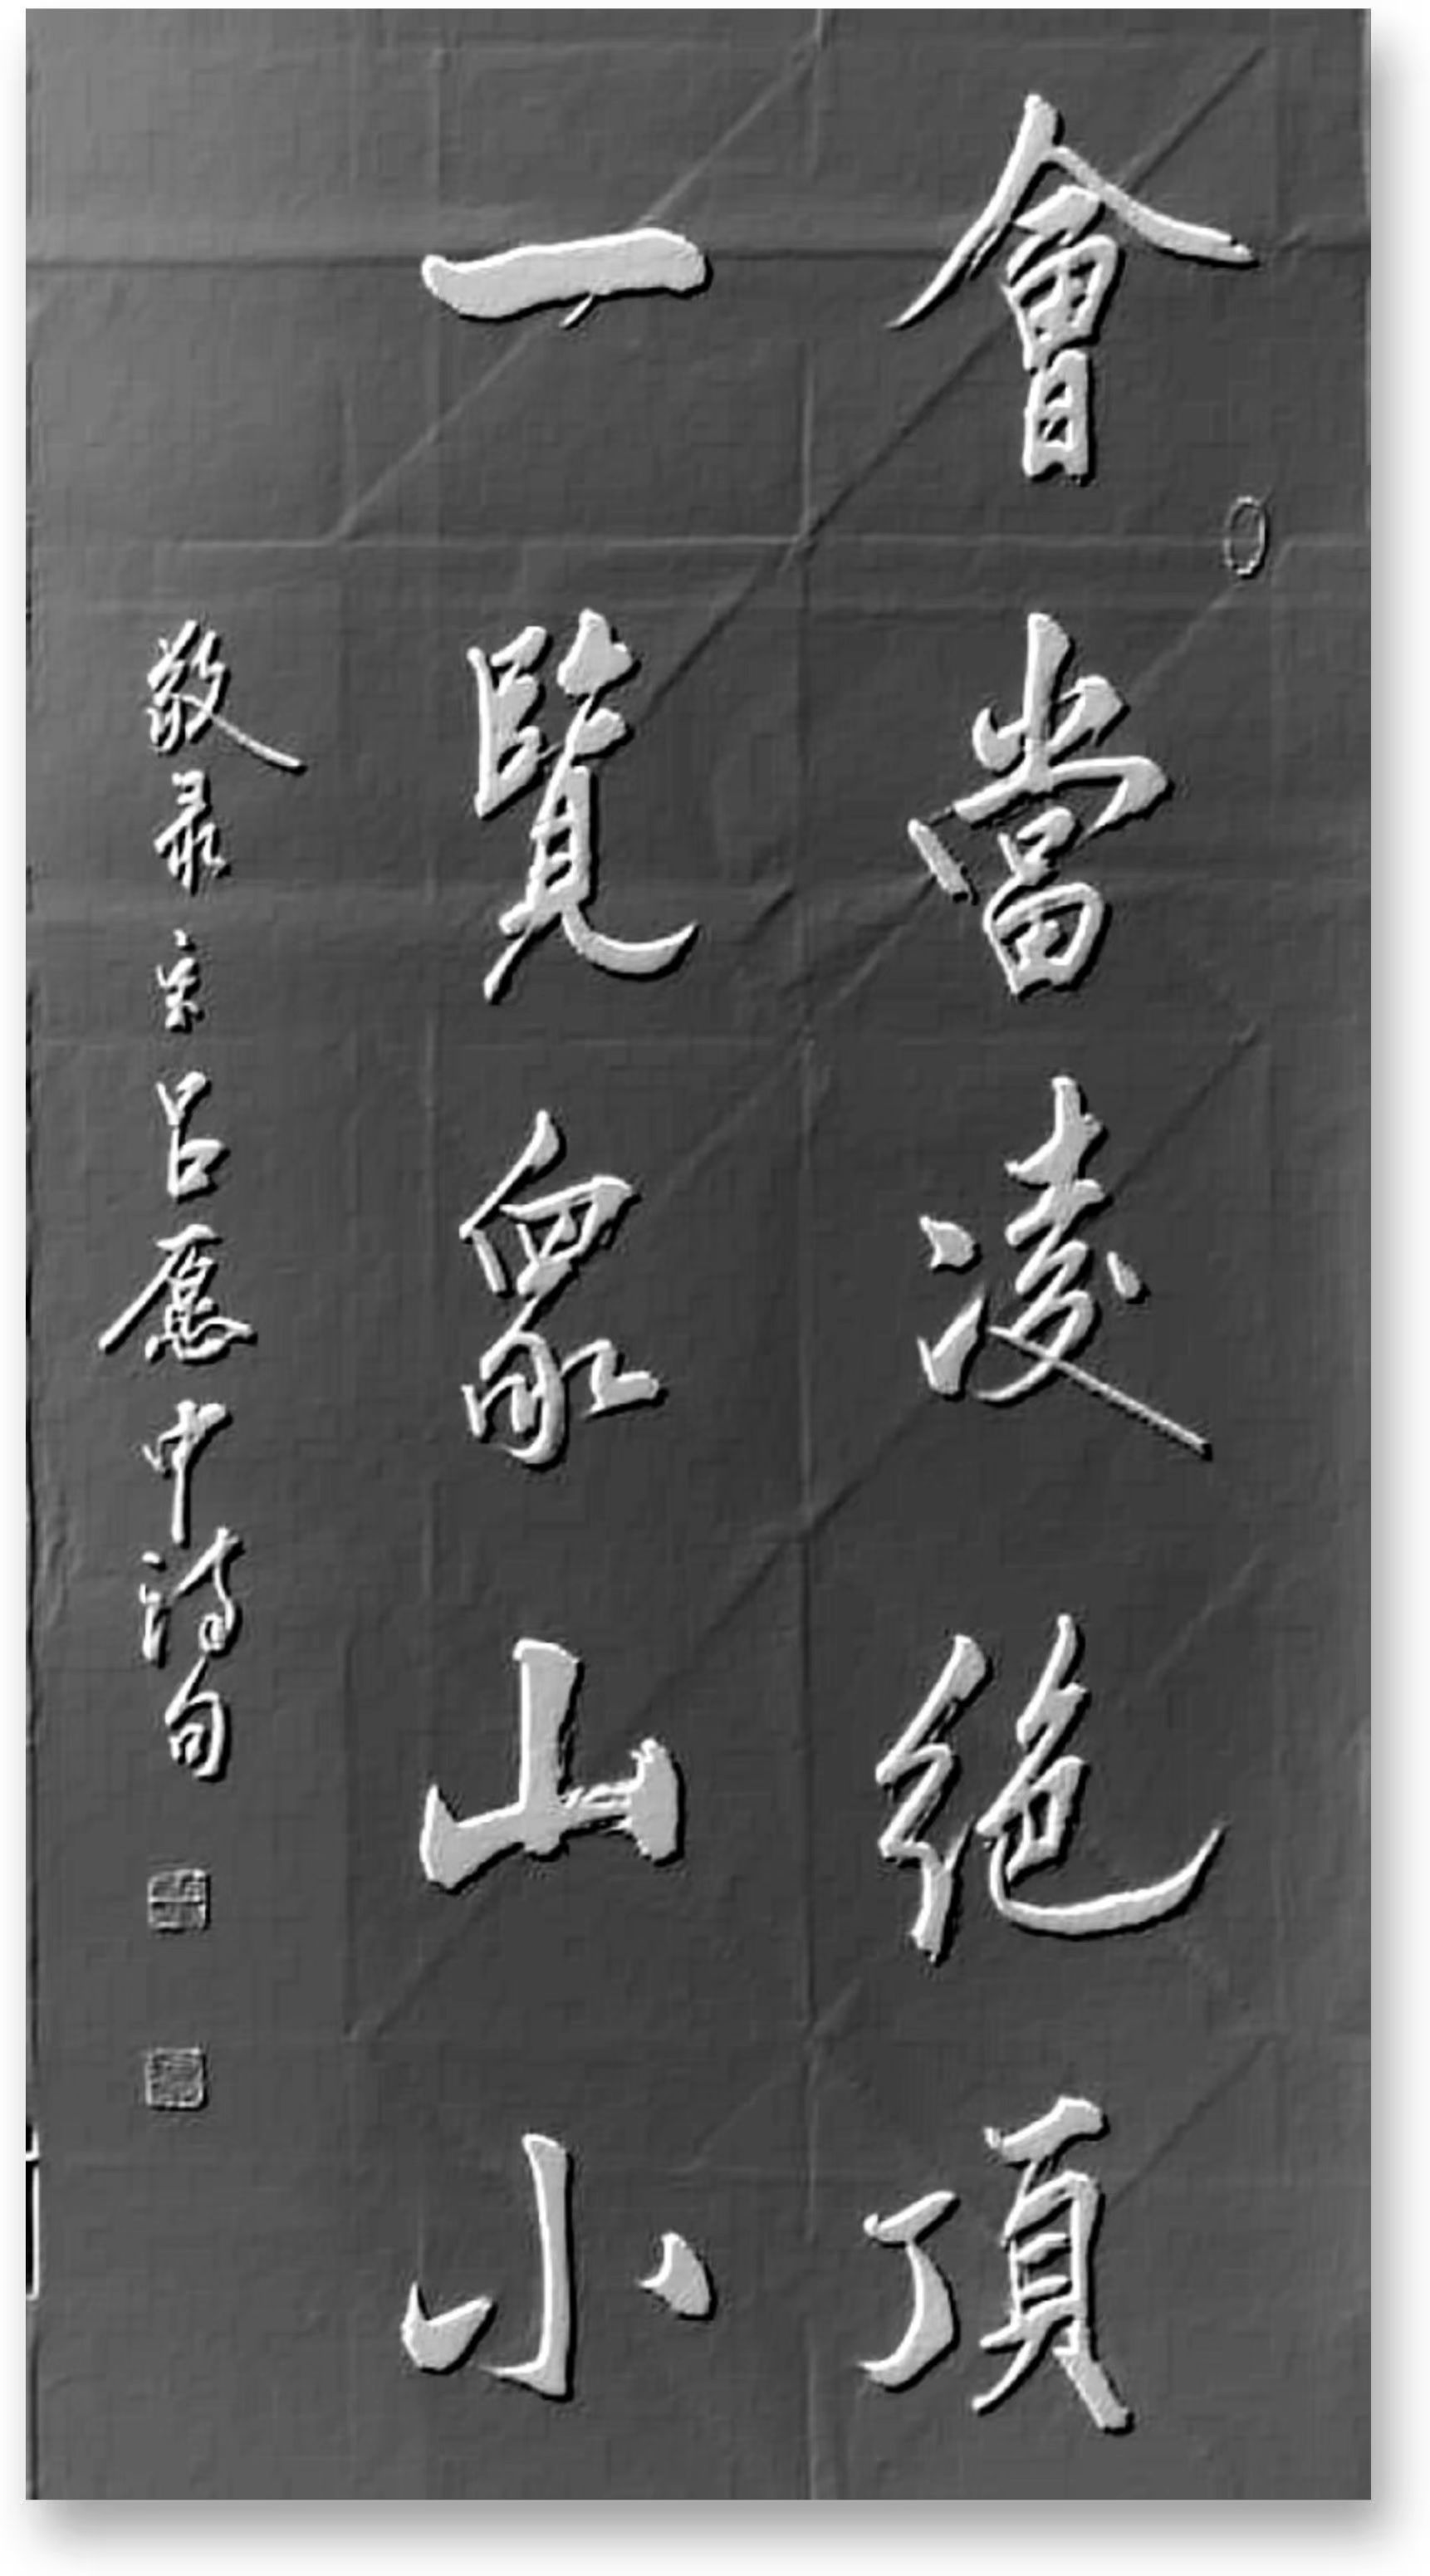 會當凌絕頂
一覽眾山小
敬录宋吕愿中诗句